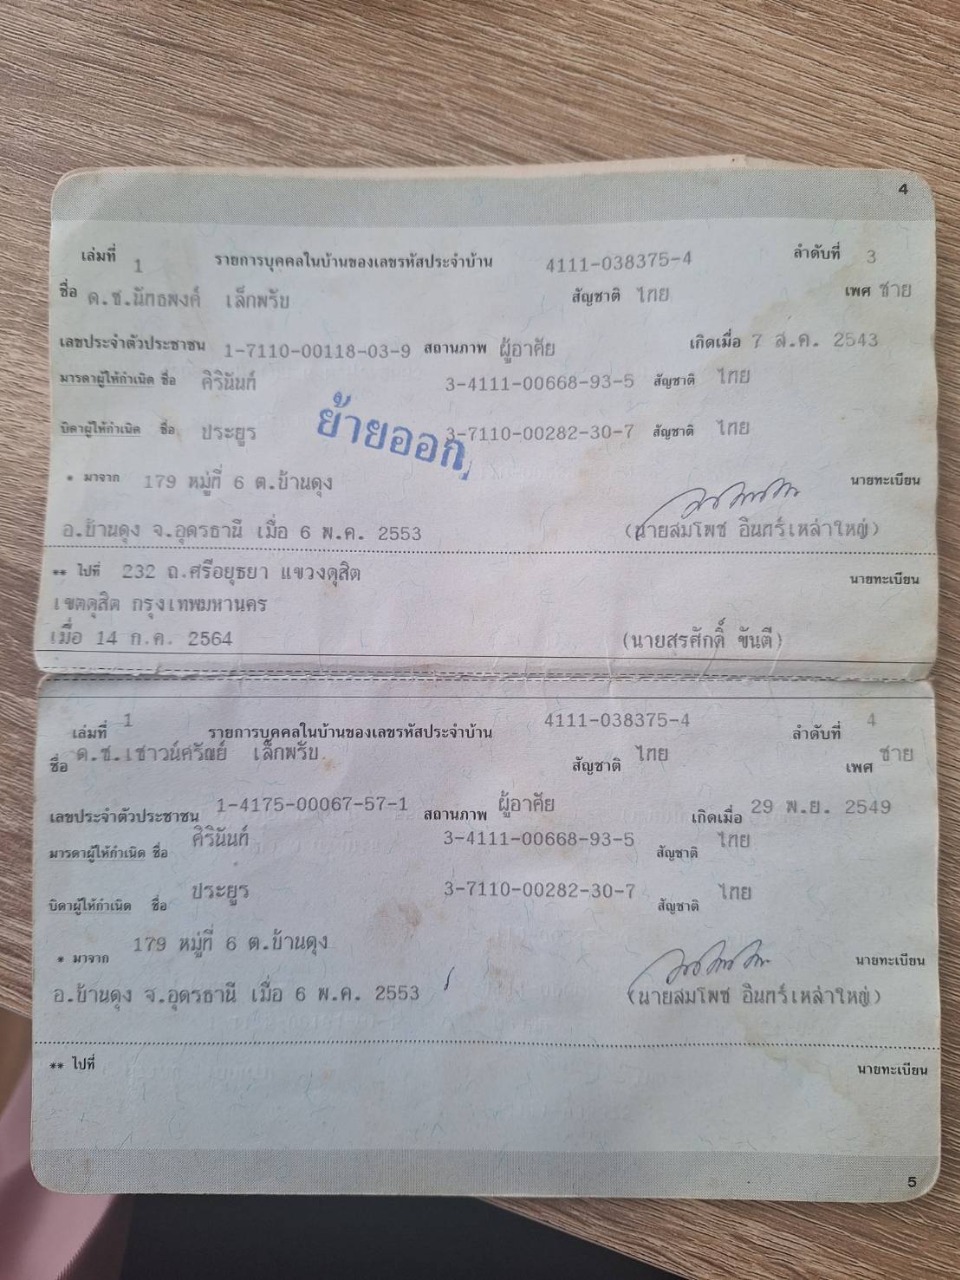 4
เล่มที่ 1 รายการบุคคลในบ้านของเลขรหัสประจำบ้าน 4111-038375-4 ลำดับที่ 3
ชื่อ ด.ช.นัทธพงศ์ เล็กพรับ สัญชาติ ไทย เพศ ชาย
เลขประจำตัวประชาชน 1-7110-00118-03-9 สถานภาพ ผู้อาศัย เกิดเมื่อ 7 ส.ค. 2543
มารดาผู้ให้กำเนิด ชื่อ ศิรินันท์ 3-4111-00668-93-5 สัญชาติ ไทย
บิดาผู้ให้กำเนิด ชื่อ ประยูร 3-7110-00282-30-7 สัญชาติ ไทย
ย้ายออก
* มาจาก 179 หมู่ที่ 6 ต.บ้านดุง นายทะเบียน
อ.บ้านดุง จ.อุดรธานี เมื่อ 6 พ.ค. 2553 (นายสมโพช อินทร์เหล่าใหญ่)
** ไปที่ 232 ถ.ศรีอยุธยา แขวงดุสิต นายทะเบียน
เขตดุสิต กรุงเทพมหานคร
เมื่อ 14 ก.ค. 2564 (นายสุรศักดิ์ ขันตี)
เล่มที่ 1 รายการบุคคลในบ้านของเลขรหัสประจำบ้าน 4111-038375-4 ลำดับที่ 4
ชื่อ ด.ช.เชาวน์ศรัณย์ เล็กพรับ สัญชาติ ไทย เพศ ชาย
เลขประจำตัวประชาชน 1-4175-00067-57-1 สถานภาพ ผู้อาศัย เกิดเมื่อ 29 พ.ย. 2549
มารดาผู้ให้กำเนิด ชื่อ ศิรินันท์ 3-4111-00668-93-5 สัญชาติ ไทย
บิดาผู้ให้กำเนิด ชื่อ ประยูร 3-7110-00282-30-7 สัญชาติ ไทย
* มาจาก 179 หมู่ที่ 6 ต.บ้านดุง นายทะเบียน
อ.บ้านดุง จ.อุดรธานี เมื่อ 6 พ.ค. 2553 (นายสมโพช อินทร์เหล่าใหญ่)
** ไปที่ นายทะเบียน
5